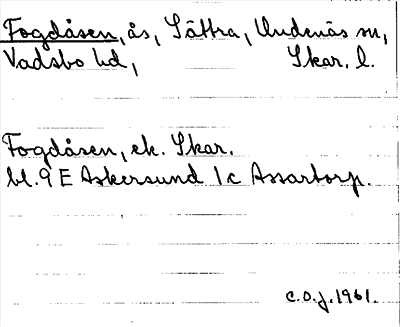 Fogdåsen, ås, Sättra, Undenäs sn,
Vadsbo hd, Skar. l.
Fogdåsen, ek. Skar.
bl. 9 E Askersund 1c Assartorp.
C.O.J. 1961.